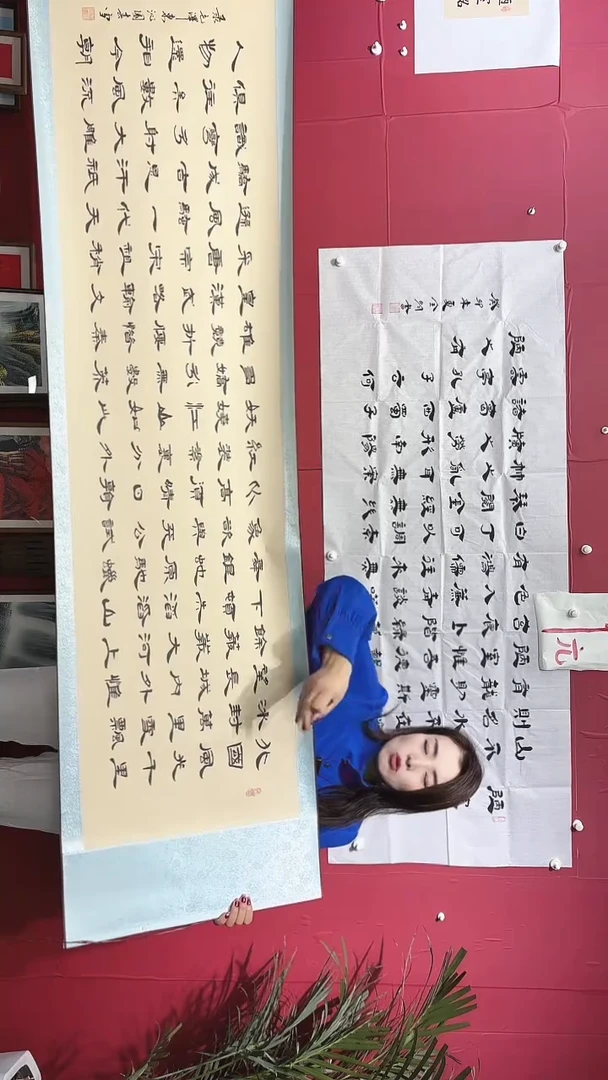 北國風光千里
冰封萬里雪飄
望長城內外惟
餘莽莽大河上
下頓失滔滔山
舞銀蛇原馳蠟
象欲與天公試
比高須晴日看
紅裝素裹分外
妖嬈江山如此
多嬌引無數英
雄競折腰惜秦
皇漢武略輸文
采唐宗宋祖稍
遜風騷一代天
驕成吉思汗祇
識彎弓射大雕
俱往矣數風流
人物還看今朝
陋
山不
則名水
有龍則靈斯
陋室惟吾德
苔痕上階綠草
色入簾青談
有鴻儒往來無
白丁可以調素
琴閱金經無
竹之亂耳無案
牘之勞形南陽
諸葛廬西蜀子
雲亭孔子云何
陋之有
元